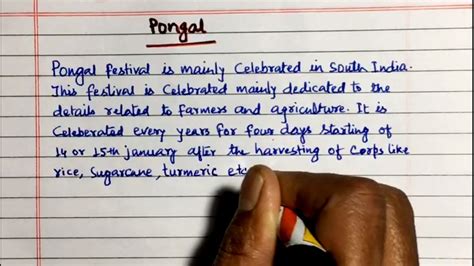 Pongal
Pongal festival is mainly Celebrated in South India.
This festival is Celebrated mainly dedicated to the
details related to farmers and agriculture. It is
Celeberated every years for four days starting of
14 or 15th january after the harvesting of Corps like
rice, Sugarcane, turmeric etc